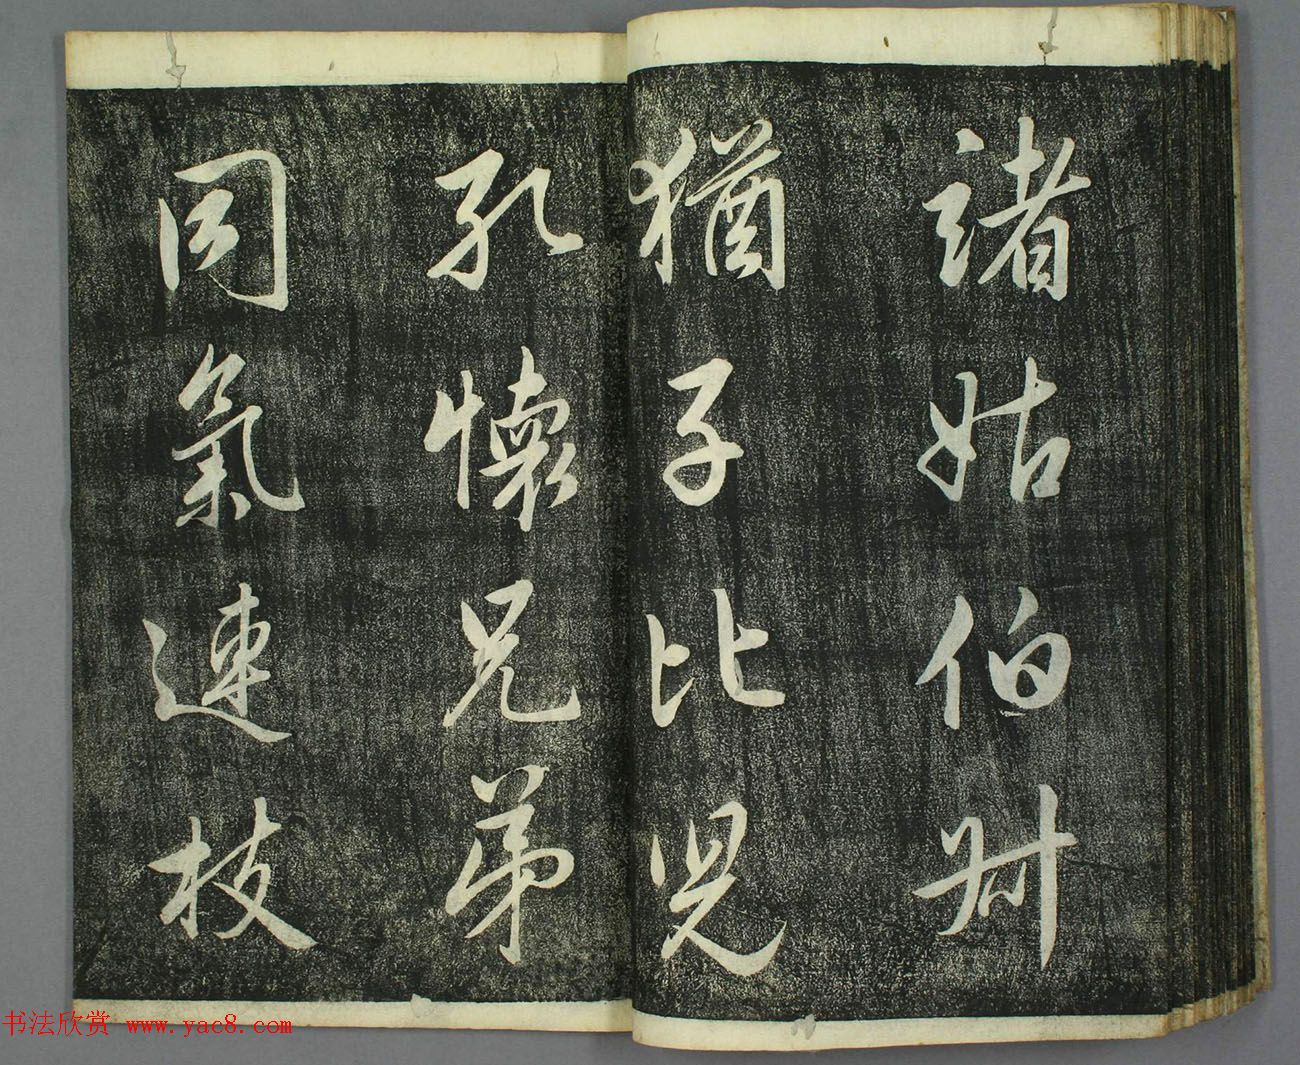 諸姑伯叔
猶子比兒
孔懷兄弟
同氣連枝
书法欣赏 www.yac8.com